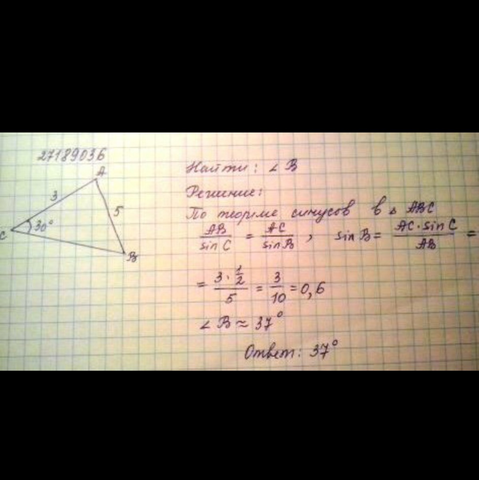 27189036
A
3
5
C
30°
B
Найти: ∠ B
Решение:
По теореме синусов в △ ABC
AB/sin C = AC/sin B ; sin B = AC·sin C/AB =
= 3·1/2/5 = 3/10 = 0,6
∠ B ≈ 37°
Ответ: 37°